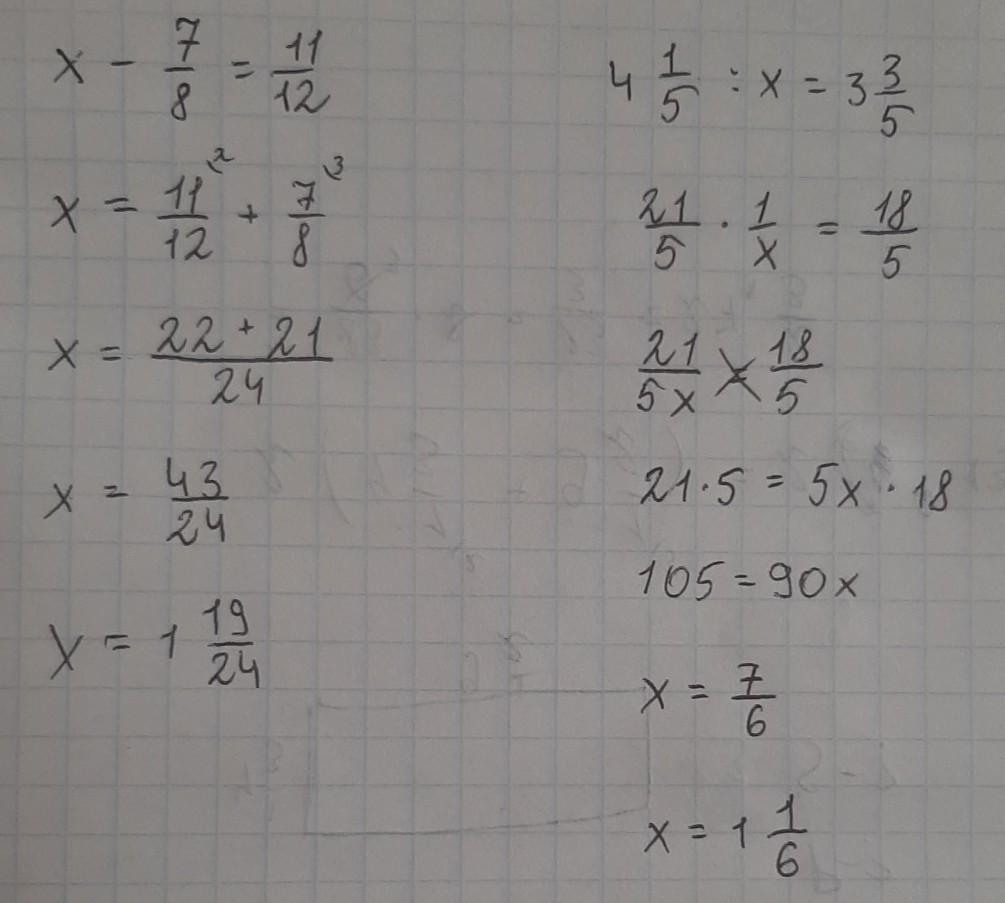 x - 7/8 = 11/12
x = 11/12 ² + 7/8 ³
x = 22 + 21 / 24
x = 43/24
x = 1 19/24
4 1/5 : x = 3 3/5
21/5 · 1/x = 18/5
21/5x = 18/5
21·5 = 5x·18
105 = 90x
x = 7/6
x = 1 1/6